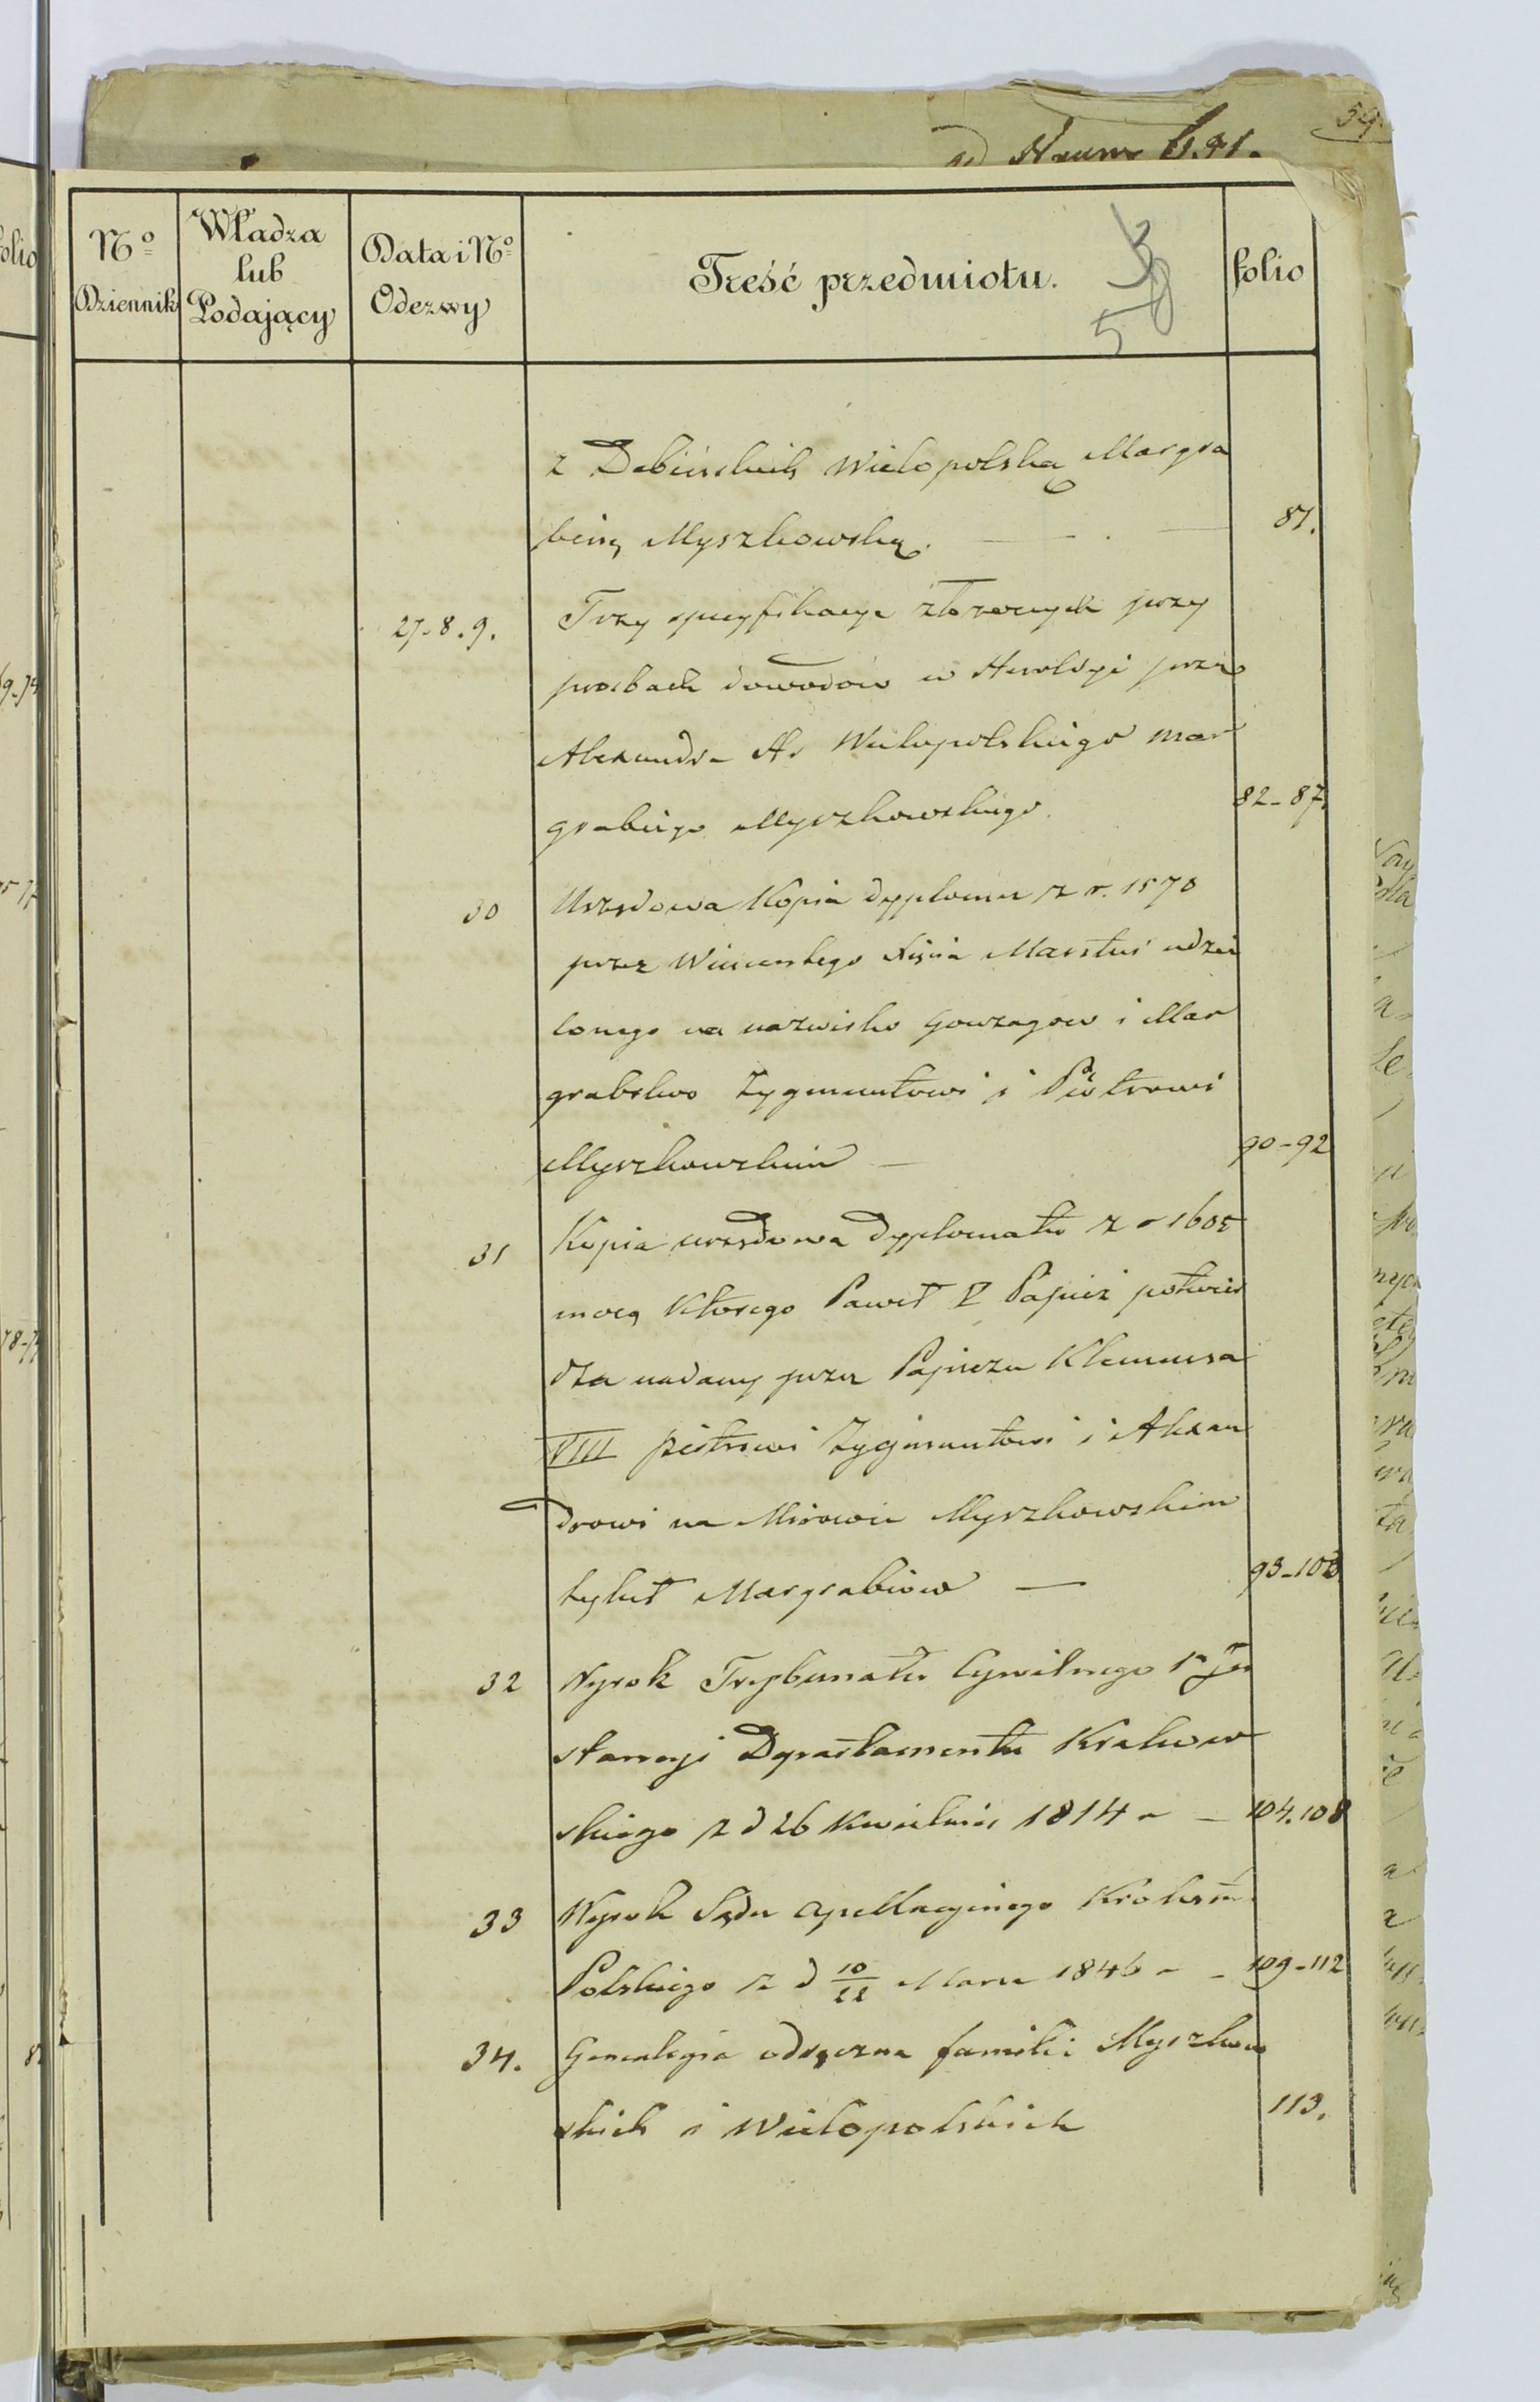 59.
ad Num 6.91.
folio
No Dziennik
Władza lub Podający
Data i No Odezwy
Treść przedmiotu.
folio
58
z Debińskich Wielopolską Margra
binę Myszkowską. — . — 81.
27.8.9. Trzy specyfikacye złożonych przy
prosbach dowodów w Heroldyi przez
Alexandra Hr Wielopolskiego mar
grabiego Myszkowskiego. 82-87.
30 Urzędowa Kopia dyplomu z r. 1570
przez Wincentego Xięcia Mantui udzie
lonego na nazwisko Gonzagow i Mar
grabstwo Zygmuntowi i Piotrowi
Myszkowskim — 90-92
31 Kopia urzędowa Dyplomatu z r 1605
mocą Ktorego Paweł V Papież potwier
dza nadany przez Papieza Klemensa
VIII piotrowi Zygmuntowi i Alexan
drowi na Mirowie Myszkowskim
tytuł Margrabiow — 93-103
32 Wyrok Trybunału Cywilnego 1ej In
stancyi Departamentu Krakow
skiego z d 26 Kwietnia 1814 r — 104.108
33 Wyrok Sądu Apellacyjnego Krolestwa
Polskiego z d 10/22 Marca 1846 r — 109-112
34. Genealogia odręczna familii Myszkow
skich i Wielopolskich 113.